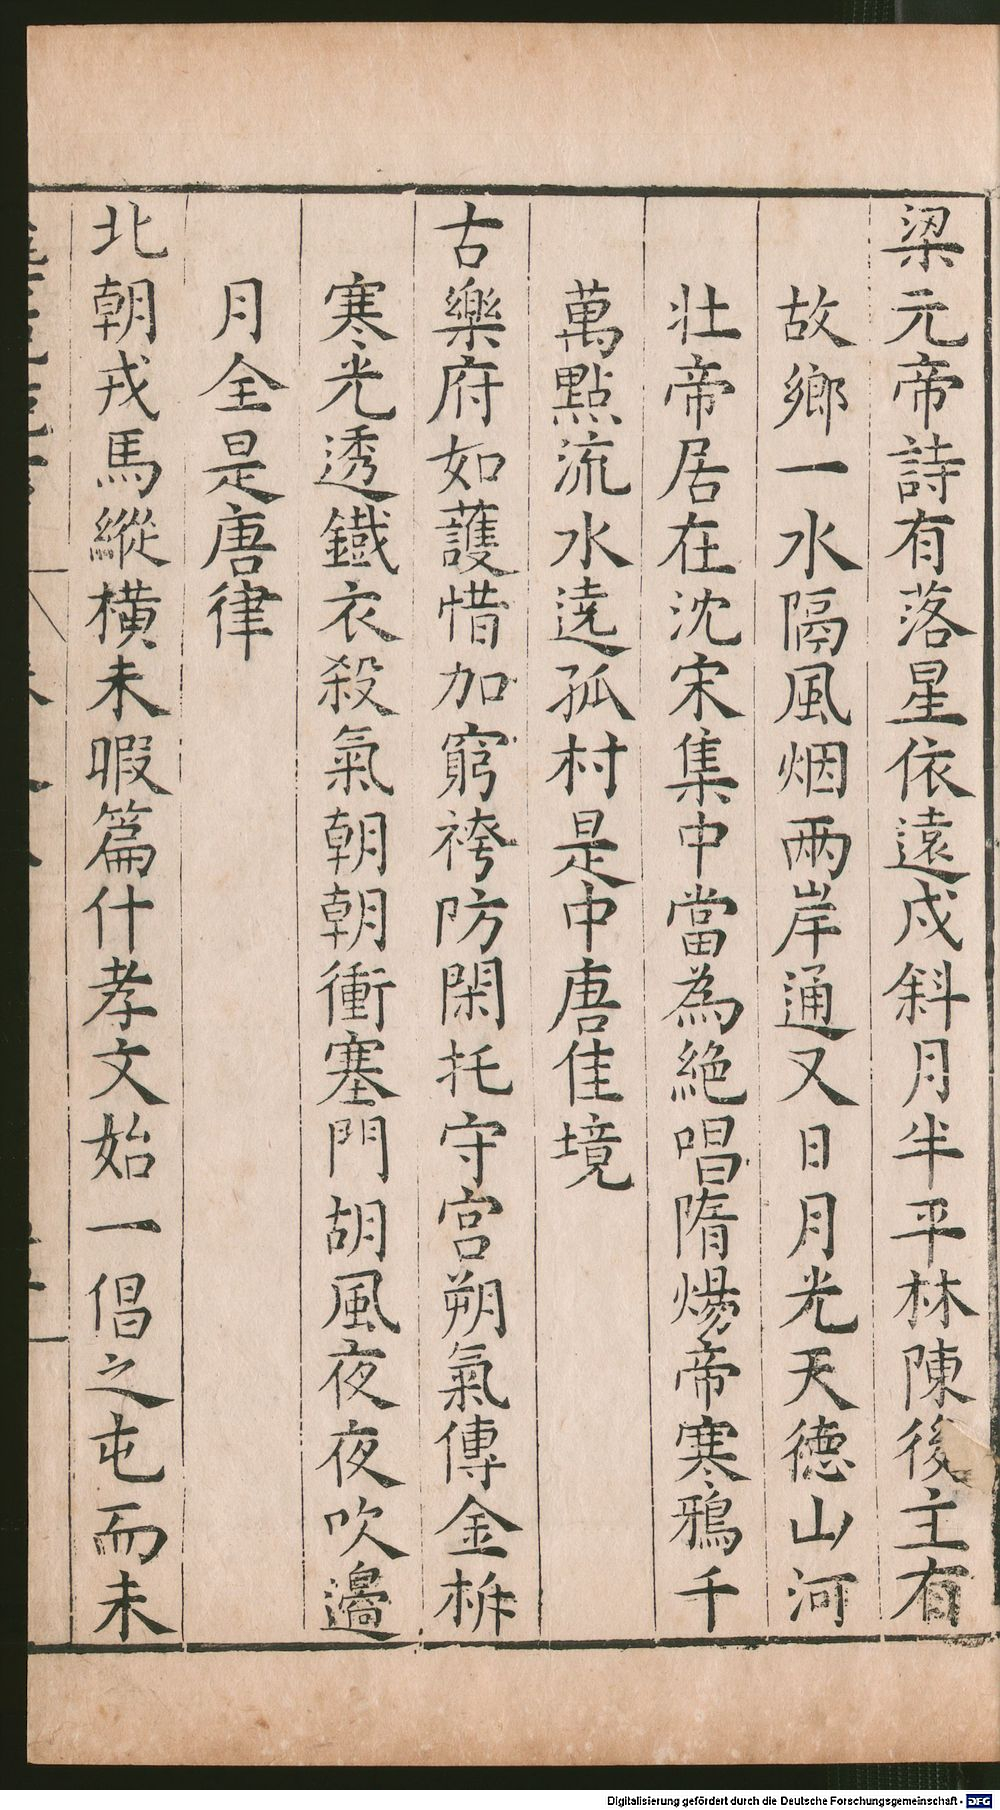 梁元帝詩有落星依遠戍斜月半平林陳後主有
故鄉一水隔風烟兩岸通又日月光天德山河
壯帝居在沈宋集中當為絕唱隋煬帝寒鴉千
萬點流水遶孤村是中唐佳境
古樂府如護惜加窮袴防閑托守宮朔氣傳金柝
寒光透鐵衣殺氣朝朝衝塞門胡風夜夜吹邊
月全是唐律
北朝戎馬縱橫未暇篇什孝文始一倡之屯而未
Digitalisierung gefördert durch die Deutsche Forschungsgemeinschaft - DFG